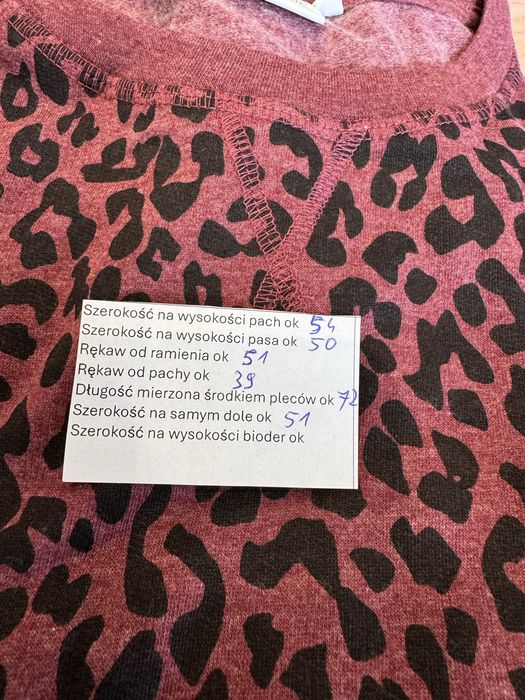 Szerokość na wysokości pach ok 54
Szerokość na wysokości pasa ok 50
Rękaw od ramienia ok 51
Rękaw od pachy ok 39
Długość mierzona środkiem pleców ok 72
Szerokość na samym dole ok 51
Szerokość na wysokości bioder ok